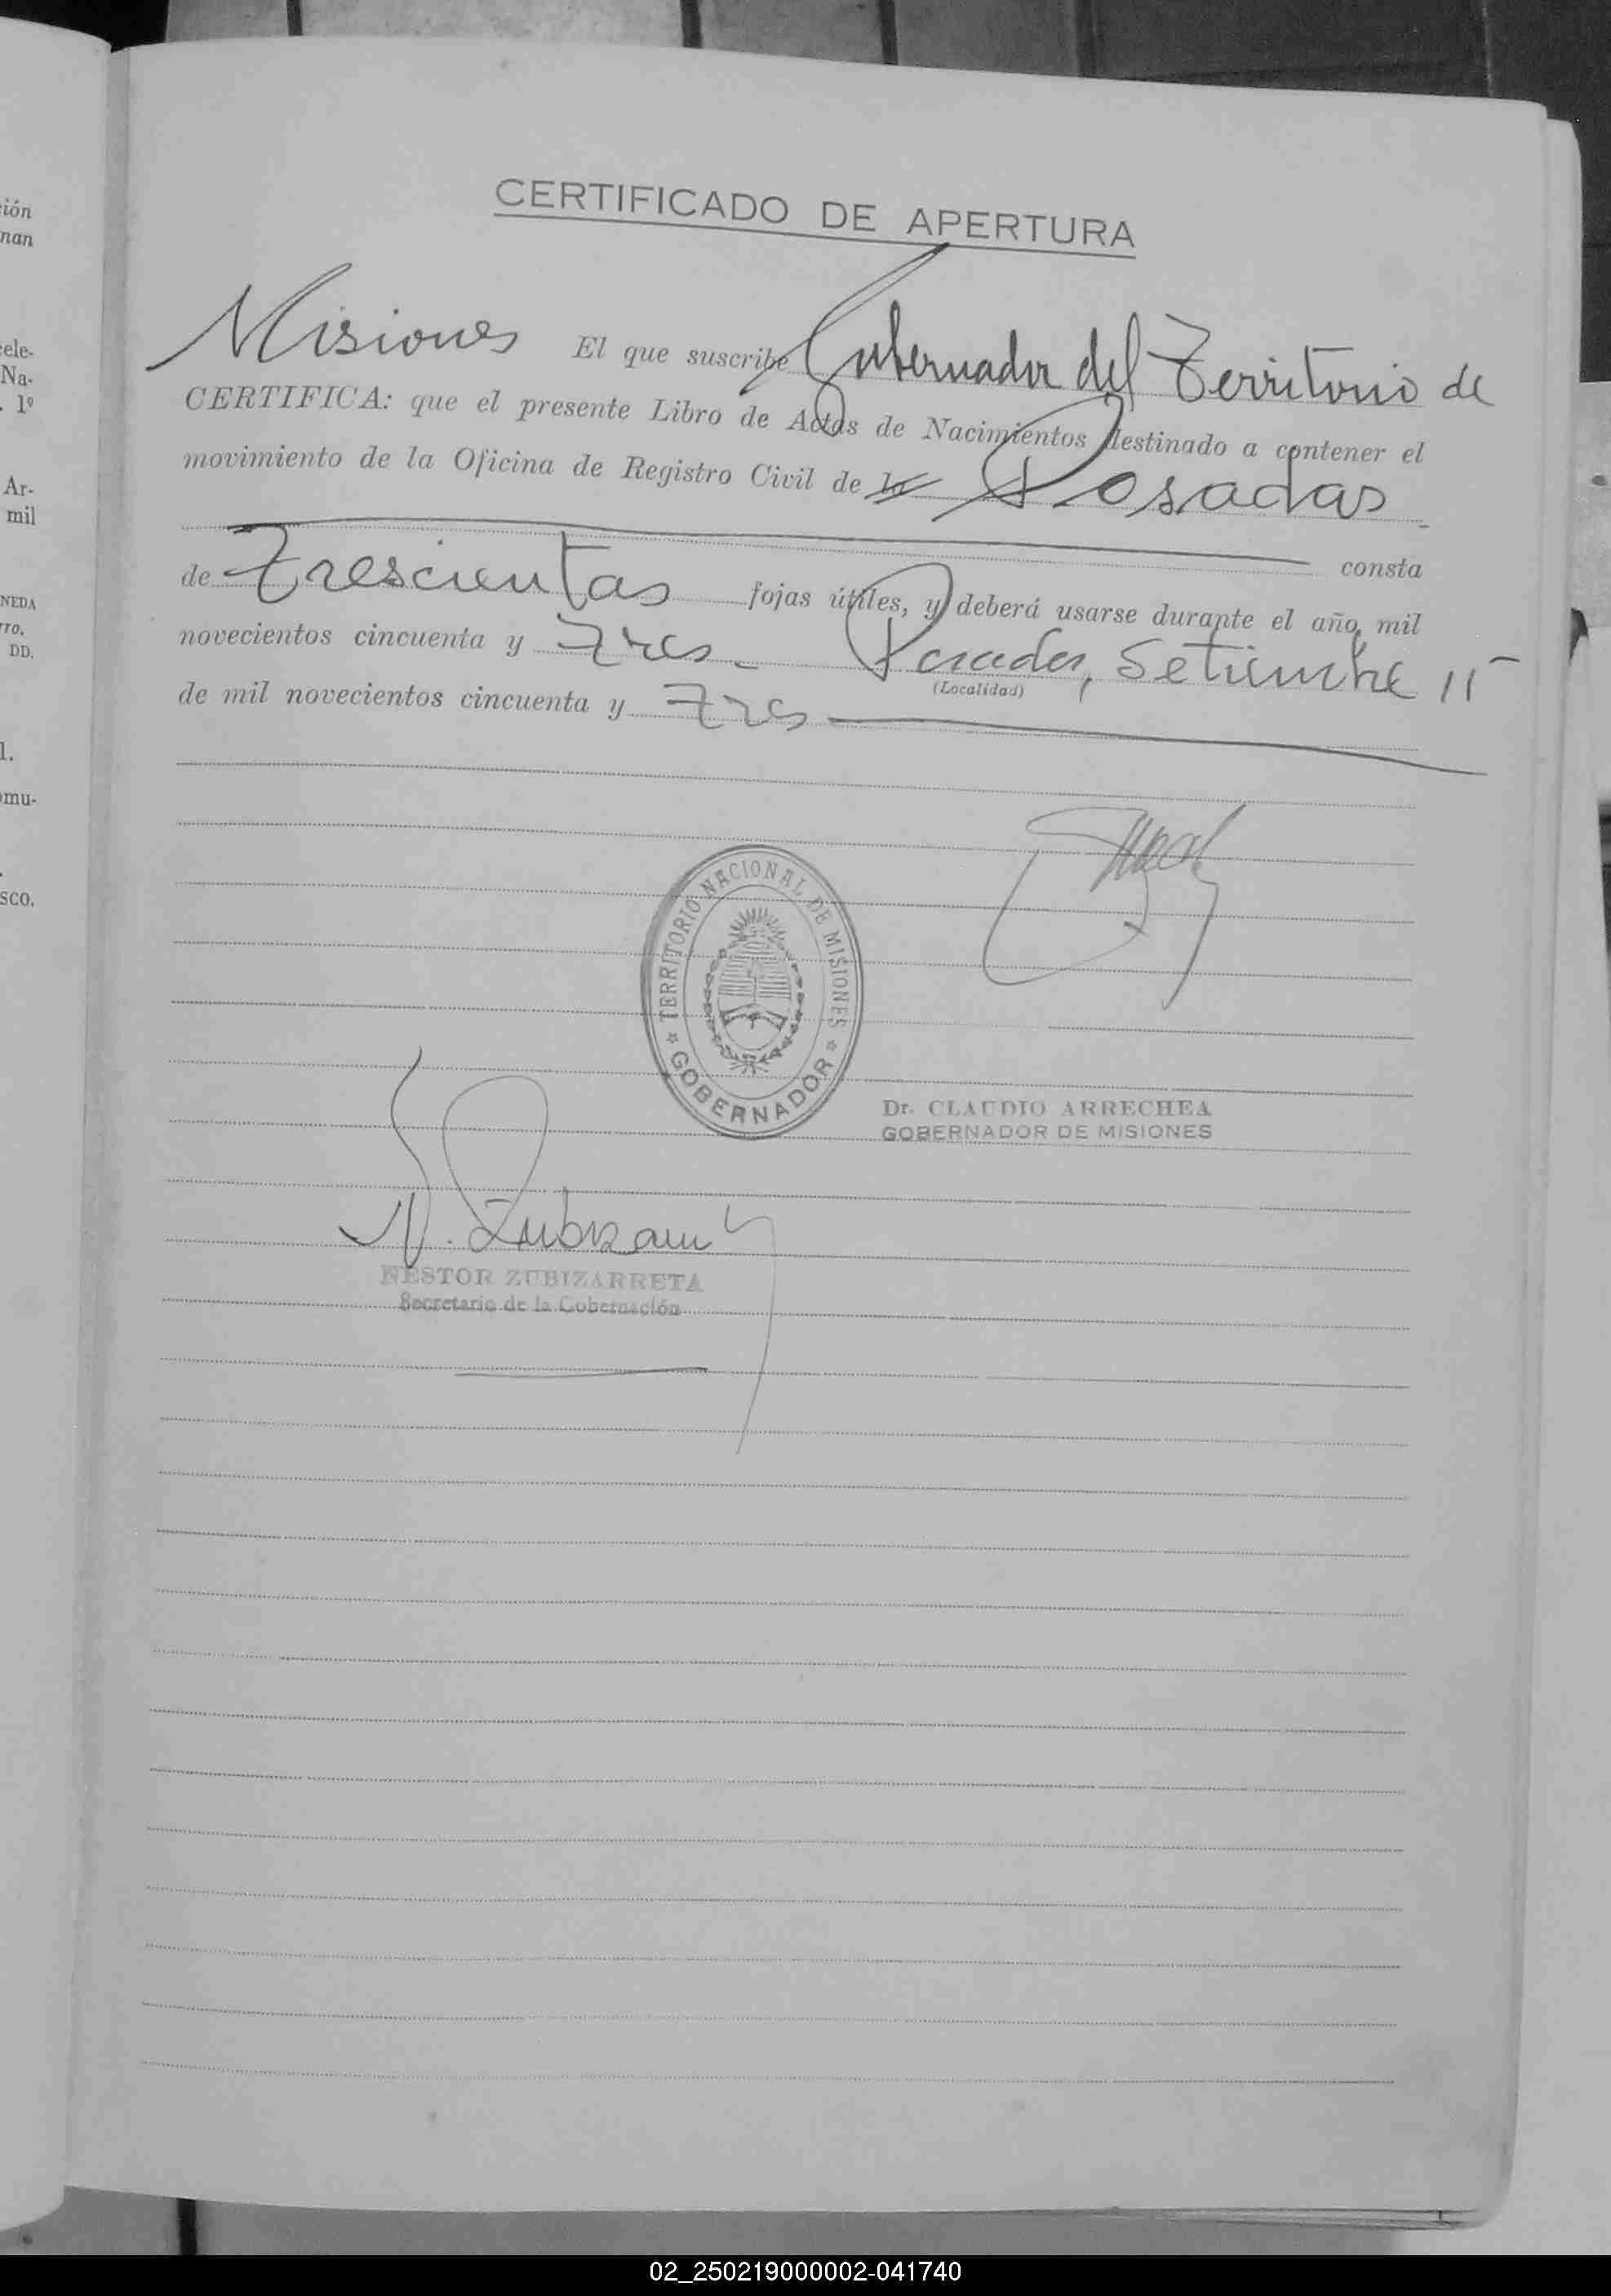 ción
nan
cele-
Na-
. 1º
Ar-
mil
NEDA
rro,
DD.
l.
omu-
.
sco.
CERTIFICADO DE APERTURA
El que suscribe Gobernador del Territorio de
Misiones
CERTIFICA: que el presente Libro de Actas de Nacimientos destinado a contener el
movimiento de la Oficina de Registro Civil de la Posadas
consta
de Trescientas fojas útiles, y deberá usarse durante el año, mil
novecientos cincuenta y Tres - Posadas, Setiembre 11
(Localidad)
de mil novecientos cincuenta y Tres
TERRITORIO NACIONAL DE MISIONES
GOBERNADOR
Dr. CLAUDIO ARRECHEA
GOBERNADOR DE MISIONES
N. Zubizarreta
NESTOR ZUBIZARRETA
Secretario de la Gobernación
02_250219000002-041740